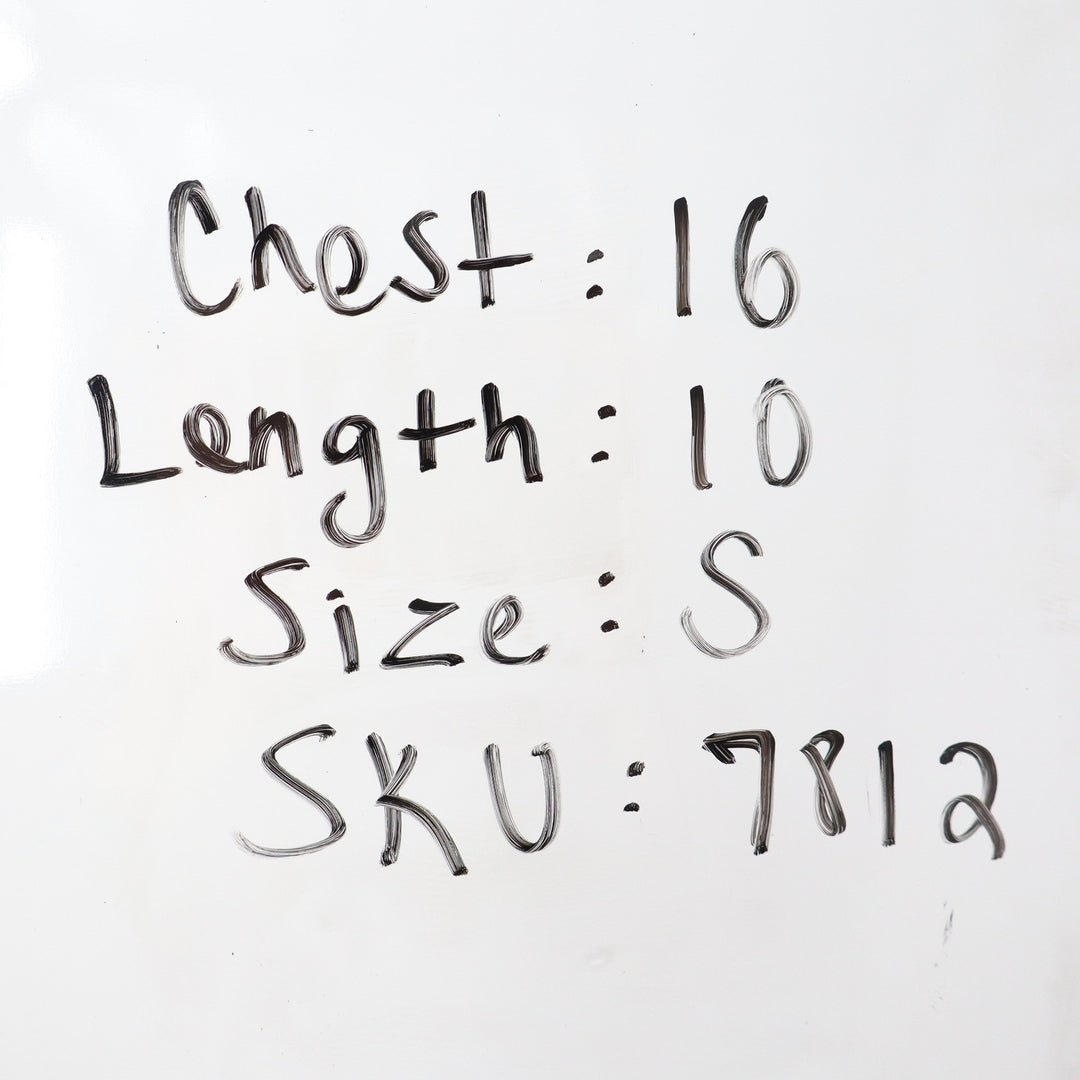 Chest: 16
Length: 10
Size: S
SKU: 7812